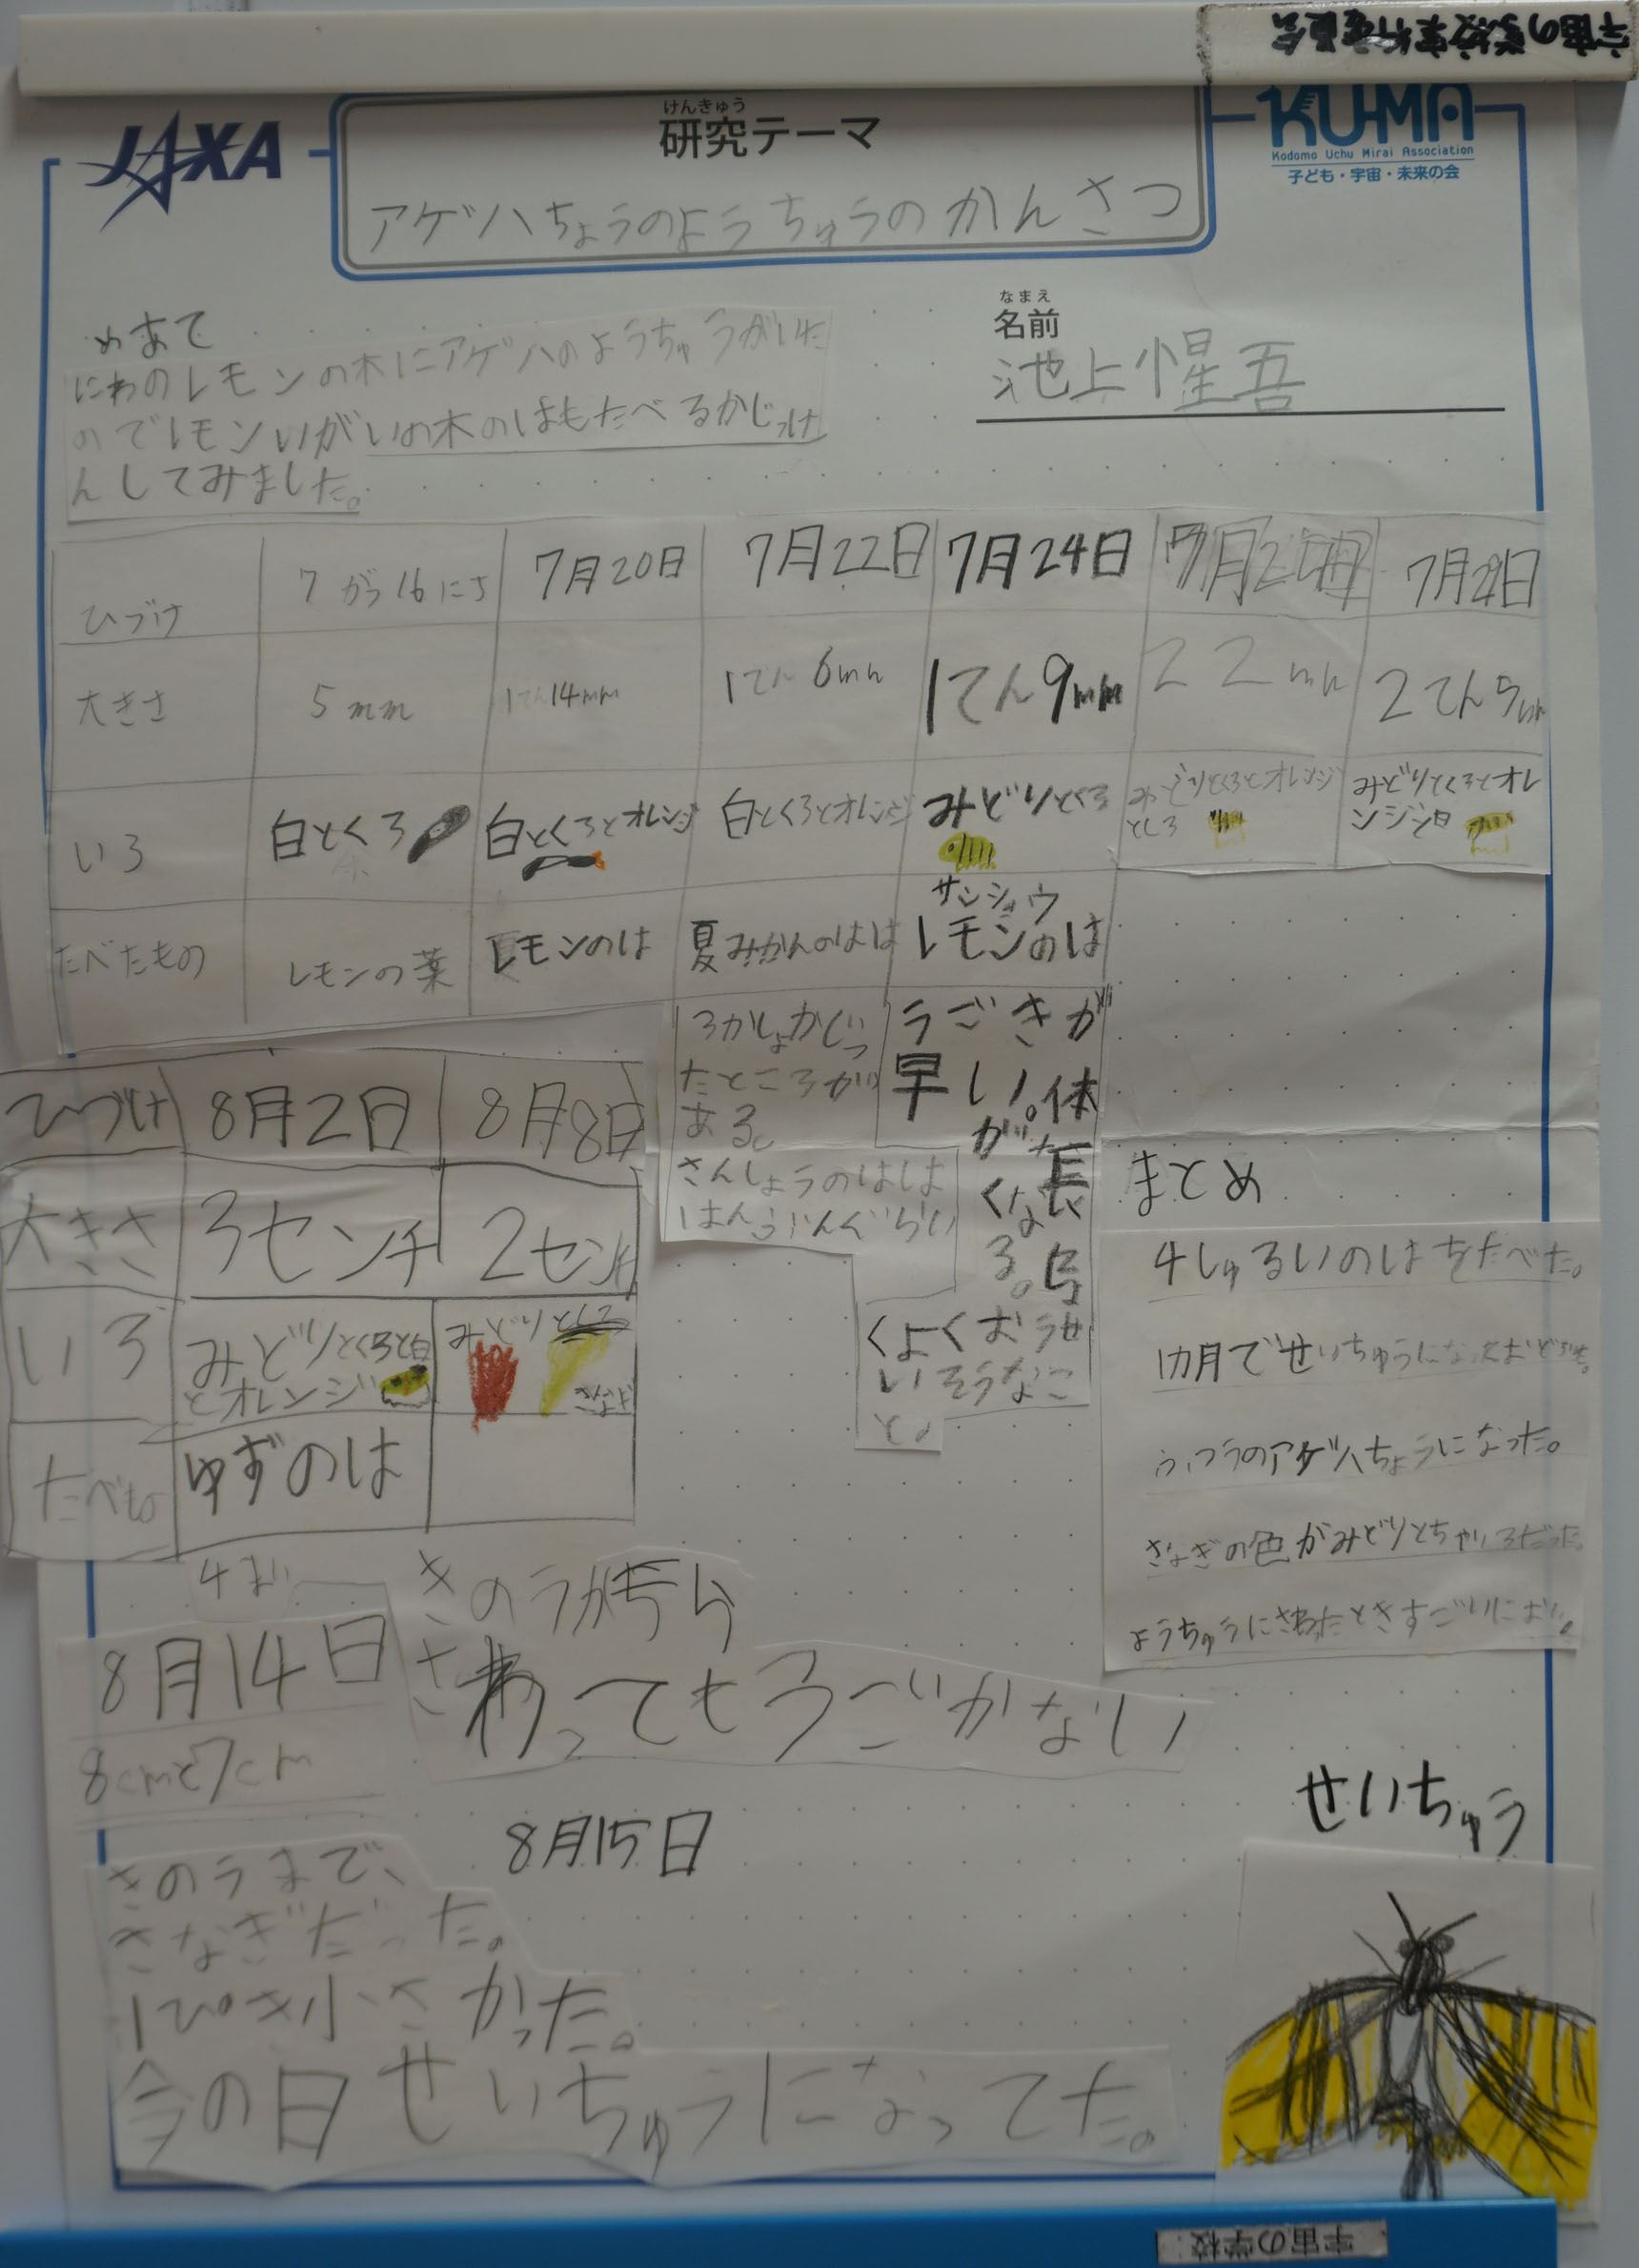 宇宙の学校実行委員会
JAXA
けんきゅう
研究テーマ
アゲハちょうのようちゅうのかんさつ
KU-MA
Kodomo Uchu Mirai Association
子ども・宇宙・未来の会
なまえ
名前
池上惺吾
めあて
にわのレモンの木にアゲハのようちゅうがいた
のでレモンいがいの木のはもたべるかじっけ
んしてみました。
ひづけ 7がつ16にち 7月20日 7月22日 7月24日 7月2 7月28日
大きさ 5mm 1てん14mm 1てん6mm 1てん9mm 22mm 2てん5mm
いろ 白とくろ 白とくろとオレンジ 白とくろとオレンジ みどりとくろ みどりとくろとオレンジ
としろ
みどりとくろとオレ
ンジと白
たべたもの レモンの葉 レモンのは 夏みかんのはは サンショウ
レモンのは
3かしょかじっ
たところが
ある。
さんしょうのはしは
はんぶんぐらい
うごきが
早い。体
長が
なくなる。
くよくおうせ
いそうなこ
と。
ひづけ 8月2日 8月8日
大きさ 3センチ 2センチ
いろ みどりとくろと白
とオレンジ
みどりと
さなぎ
たべもの ゆずのは
まとめ
4しゅるいのはをたべた。
1カ月でせいちゅうになった
ふつうのアゲハちょうになった。
さなぎの色がみどりとちゃいろだった
ようちゅうにさわったときすごいにおい。
きのうから
さわってもうごかない
8月14日
8cmと7cm
8月15日
きのうまで、
さなぎだった。
1ぴき小さかった。
今の日せいちゅうになってた。
せいちゅう
宇宙の学校